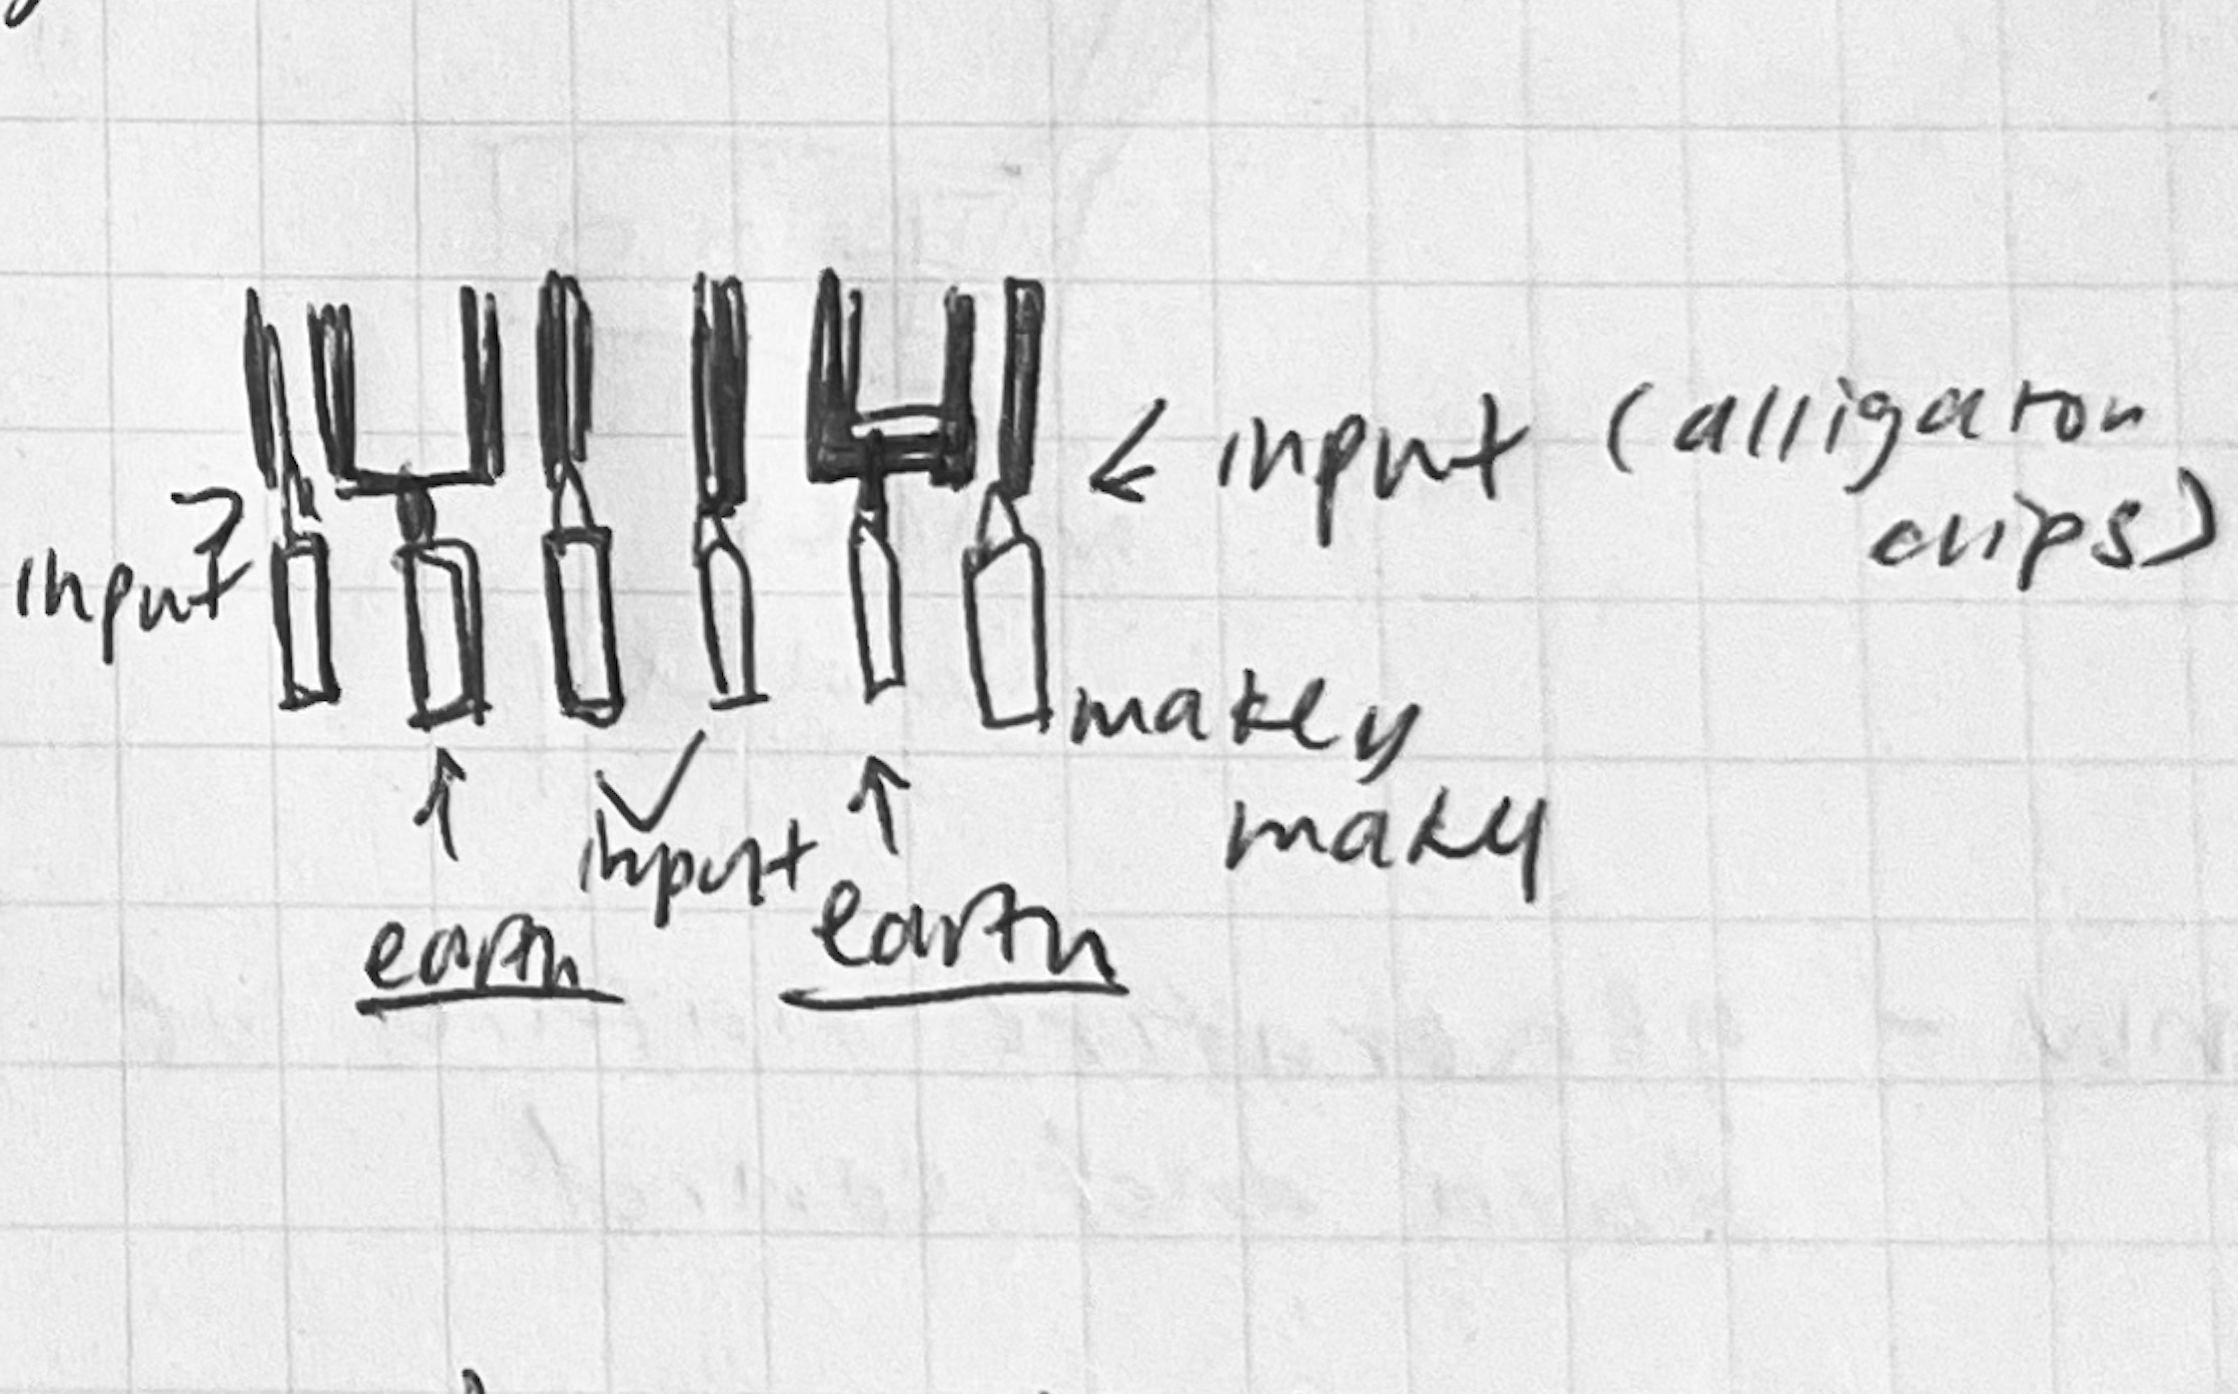 input (alligator
clips)
input
makey
makey
input
earth
earth